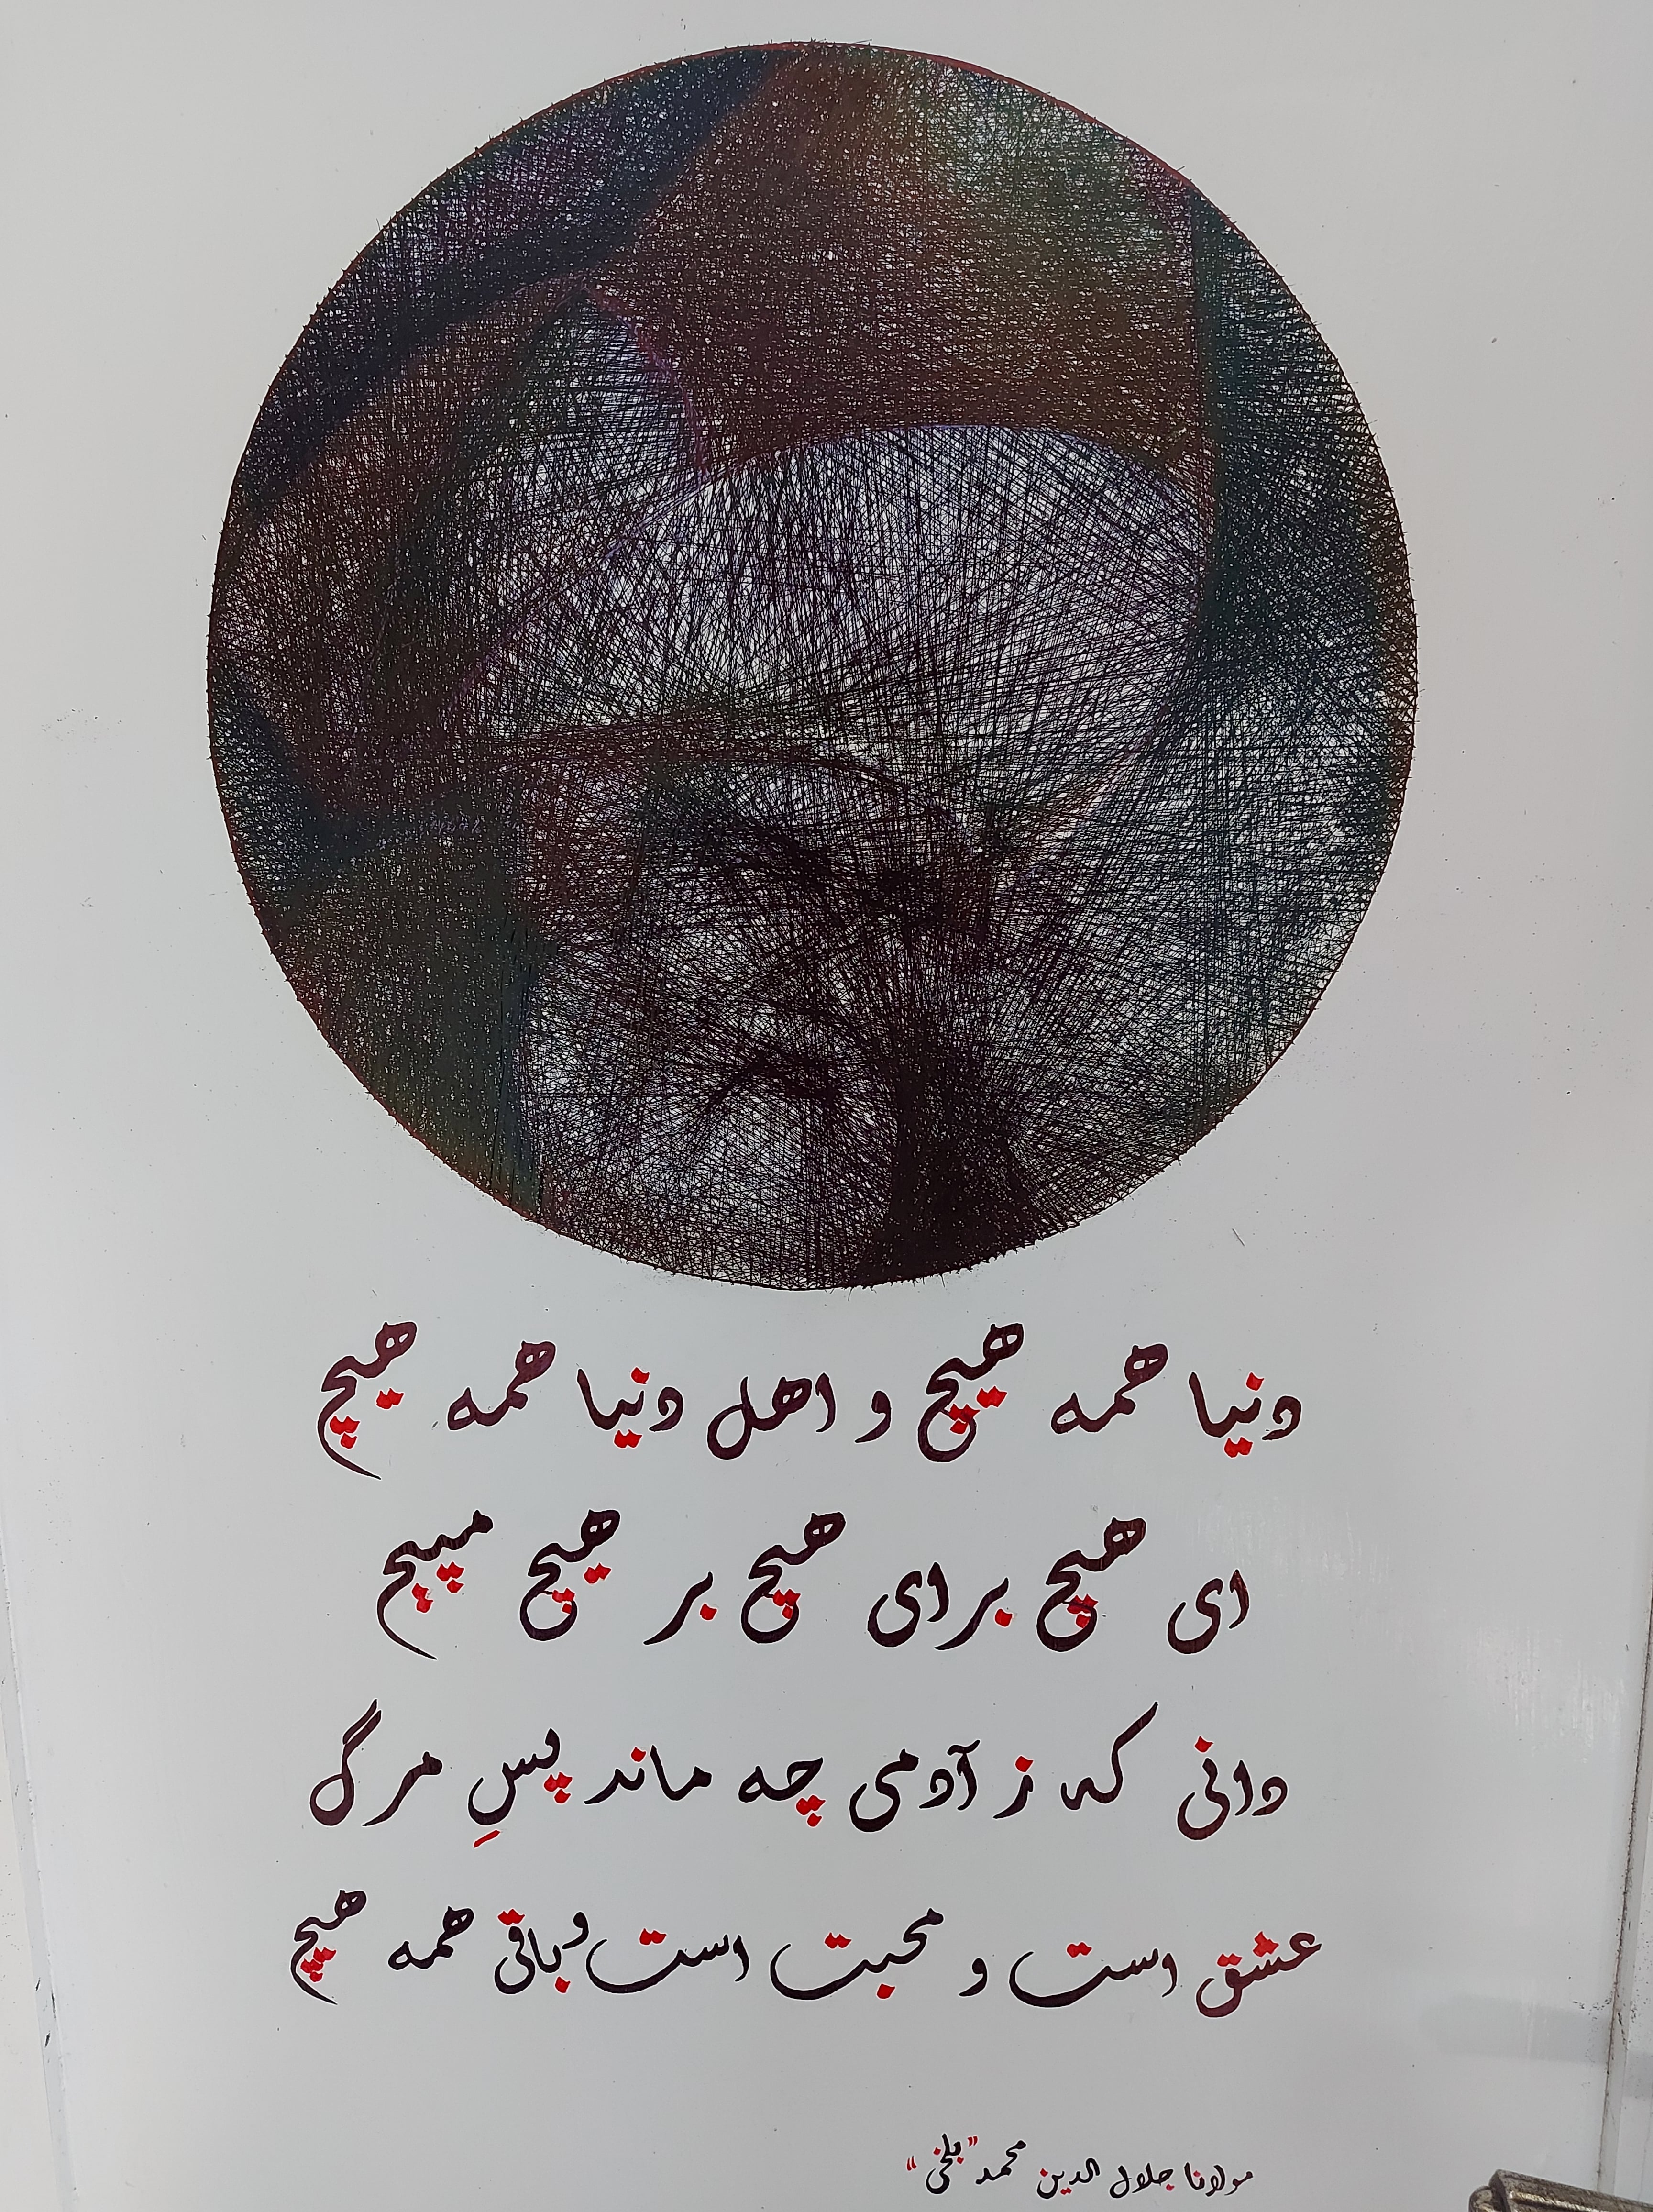 دنیا همه هیچ و اهل دنیا همه هیچ
ای هیچ برای هیچ بر هیچ مپیچ
دانی که ز آدمی چه ماند پسِ مرگ
عشق است و محبت است و باقی همه هیچ
مولانا جلال الدین محمد "بلخی"